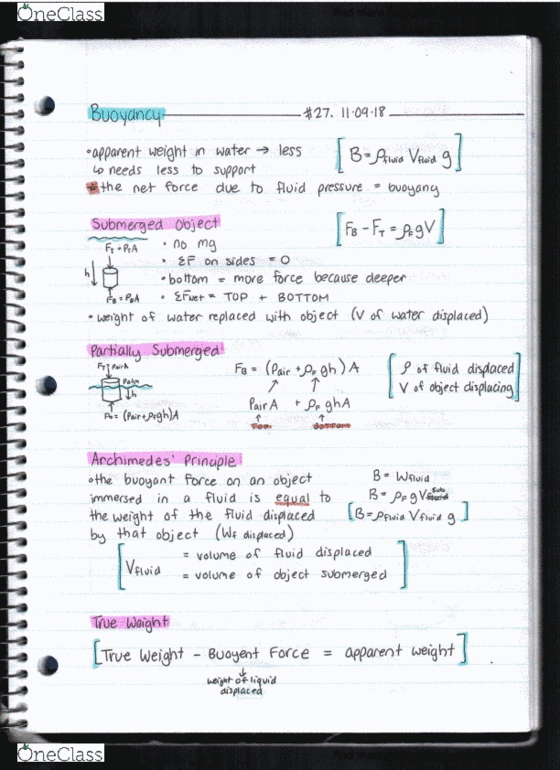 OneClass
Buoyancy #27. 11-09-18
•apparent weight in water → less
↳ needs less to support
[B = ρfluid Vfluid g]
*the net force due to fluid pressure = buoyancy
Submerged Object
[FB - FT = ρF g V]
FT = PTA
h
FB = PBA
• no mg
• ΣF on sides = 0
• bottom = more force because deeper
• ΣFnet = TOP + BOTTOM
• weight of water replaced with object (V of water displaced)
Partially Submerged
FT PairA
Patm
h
FB = (Pair + ρFgh)A
FB = (Pair + ρF gh) A
Pair A + ρF ghA
Top Bottom
[ρ of fluid displaced
V of object displacing]
Archimedes' Principle
•the buoyant force on an object
immersed in a fluid is equal to
the weight of the fluid displaced
by that object (Wf displaced)
B = Wfluid
B = ρF g Vsub
[B = ρfluid Vfluid g]
[Vfluid = volume of fluid displaced
= volume of object submerged]
True Weight
[True Weight - Buoyent Force = apparent weight]
weight of liquid
displaced
OneClass